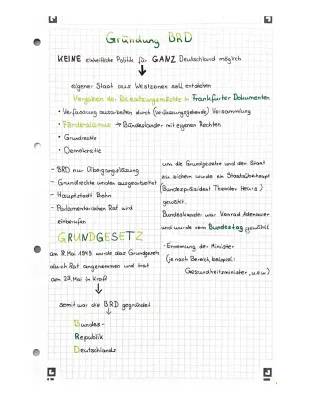 Gründung BRD
KEINE einheitliche Politik für GANZ Deutschland möglich
eigener Staat aus Westzonen soll entstehen
Vorgaben der Besatzungsmächte in Frankfurter Dokumenten
• Verfassung ausarbeiten durch (verfassungsgebende) Versammlung
• Föderalismus → Bundesländer mit eigenen Rechten
• Grundrechte
• Demokratie
- BRD nur Übergangslösung
- Grundrechte wurden ausgearbeitet
- Hauptstadt Bonn
- Parlamentarischen Rat wird
einberufen
GRUNDGESETZ
am 8. Mai 1949 wurde das Grundgesetz
durch Rat angenommen und trat
am 23. Mai in Kraft
somit war die BRD gegründet
Bundes-
Republik
Deutschlands
um die Grundgesetze und den Staat
zu sichern wurde ein Staatsoberhaupt
(Bundespräsident Theodor Heuss)
gewählt.
Bundeskanzler war Konrad Adenauer
und wurde vom Bundestag gewählt
- Ernennung der Minister
(je nach Bereich, beispiel:
Gesundheitsminister, usw)